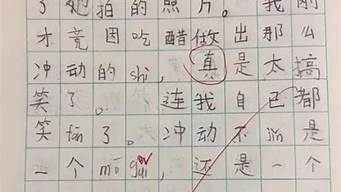 了她拍的照片。我刚
才竟因吃醋做出那么
冲动的shi，真是太搞
笑了。连我自己都
笑fan了。冲动不jin是
一个mō guǐ，还是一个